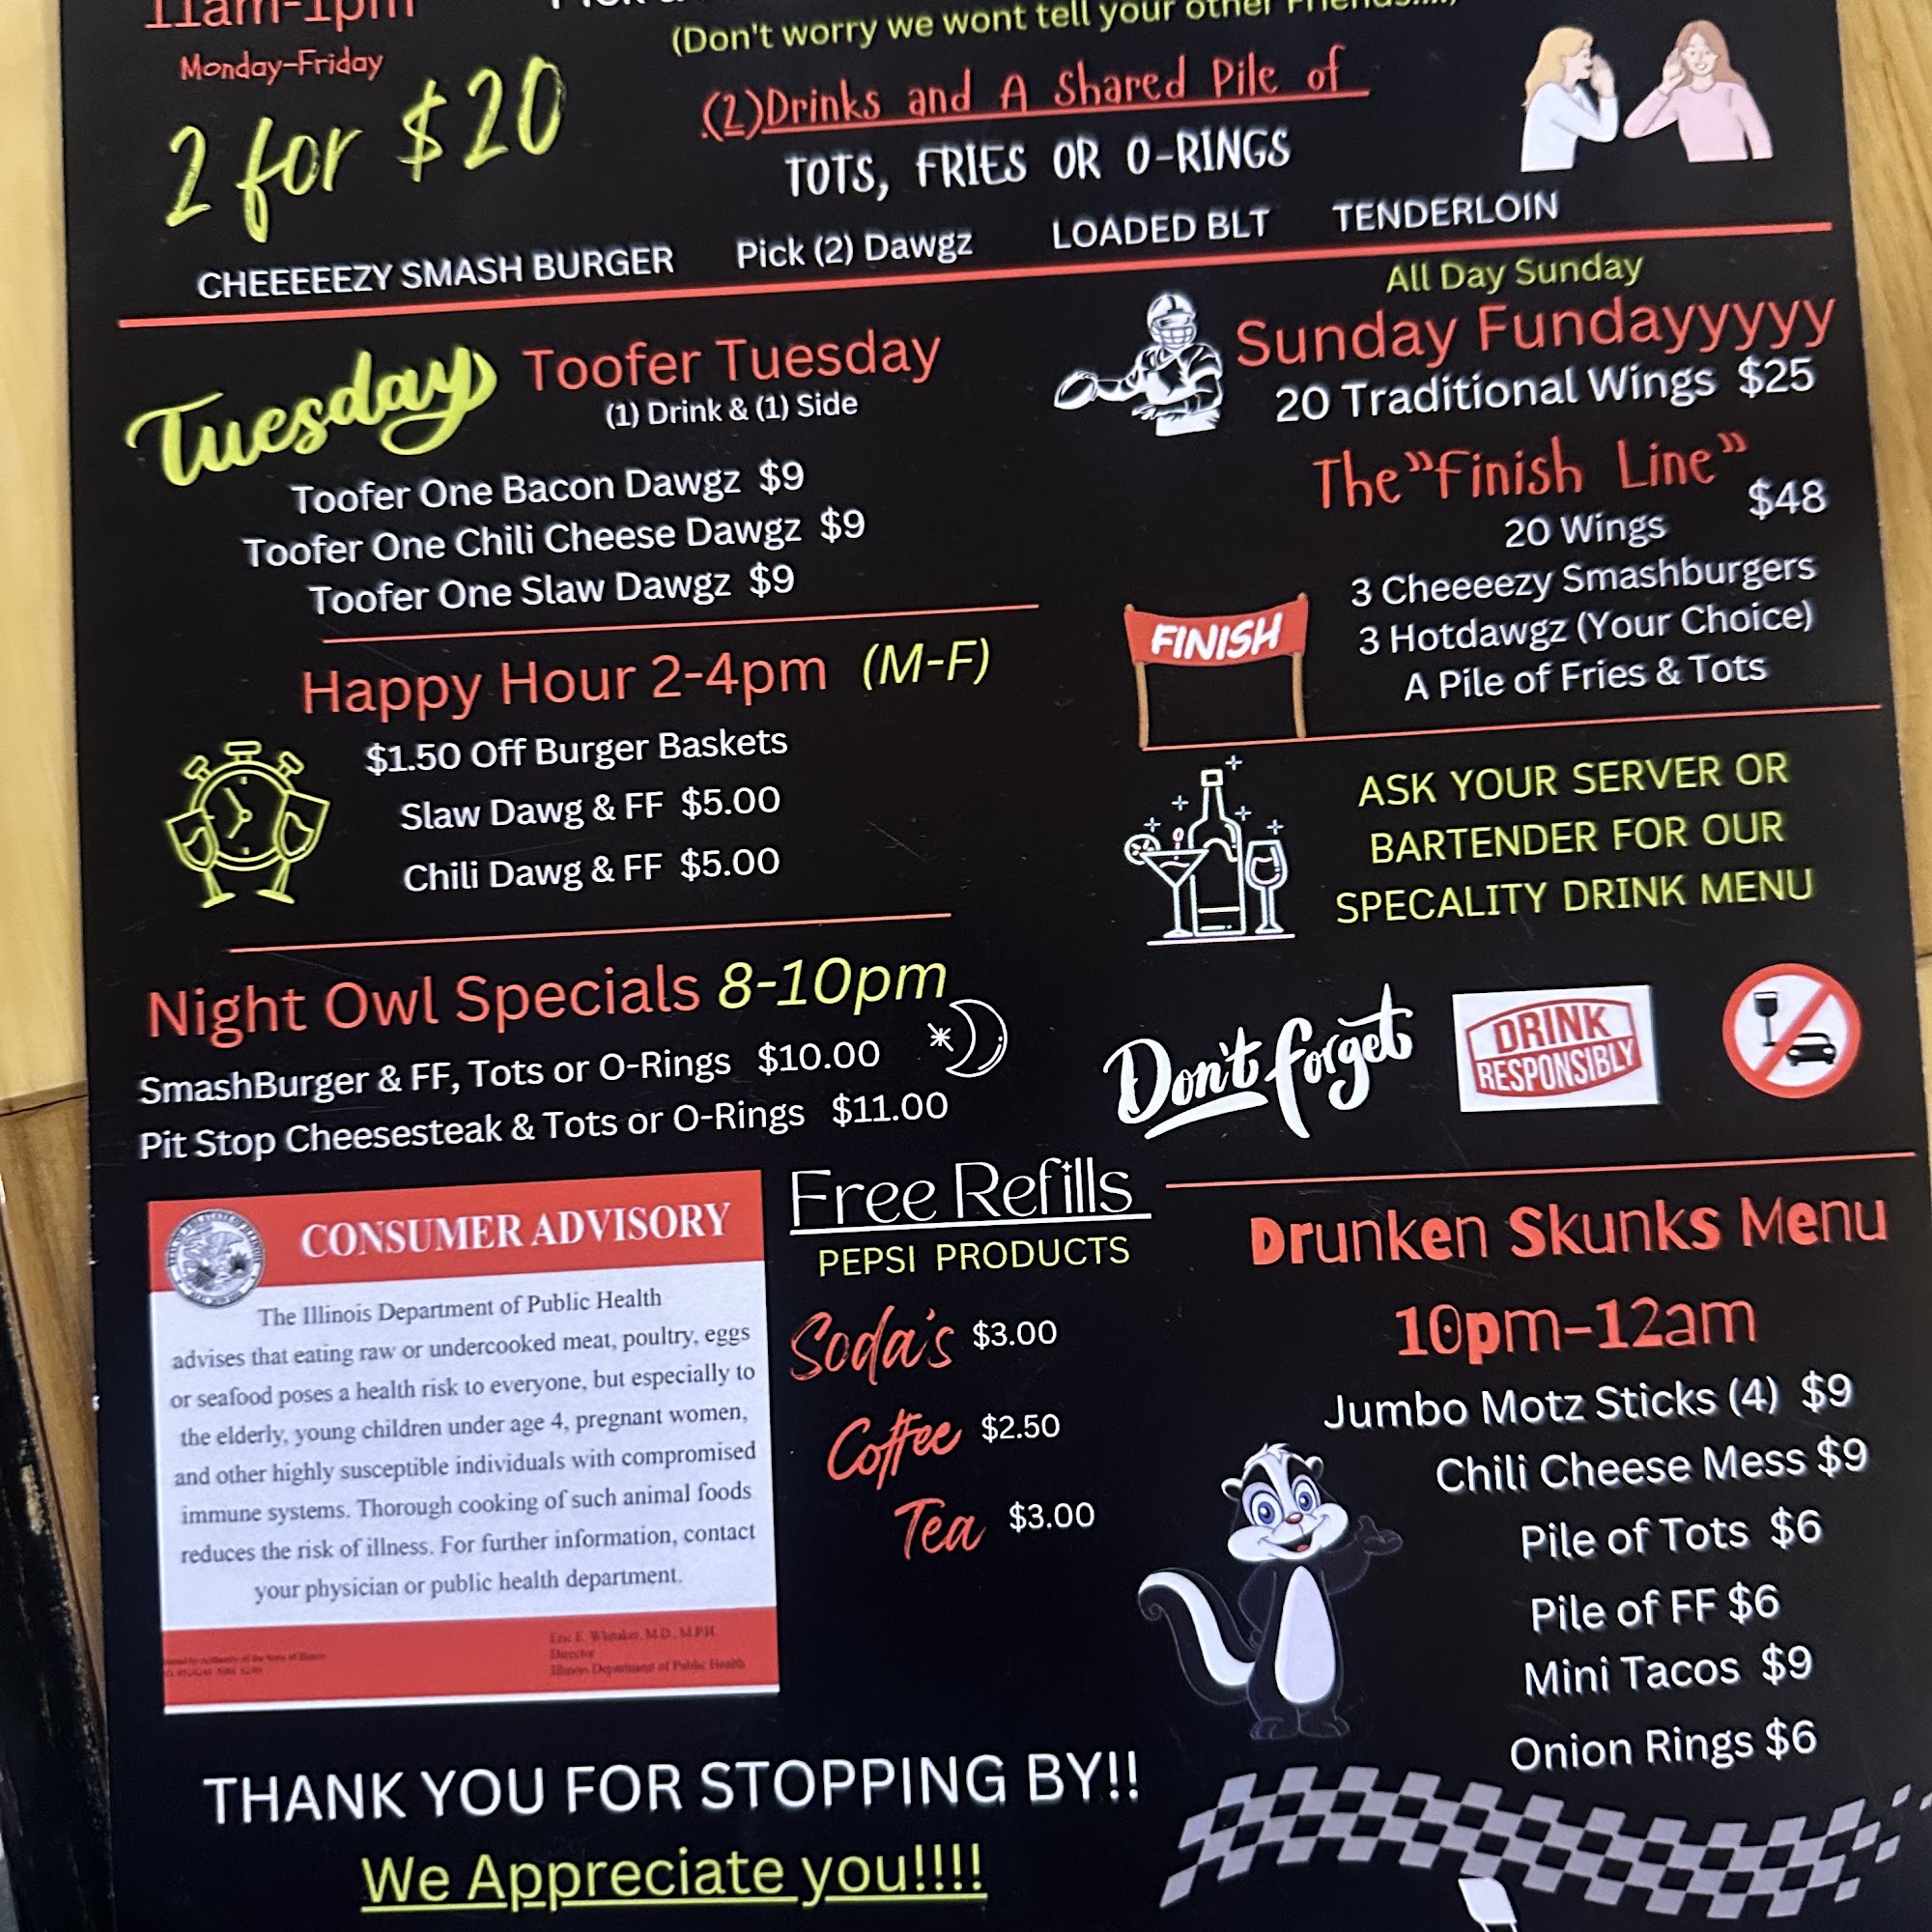 11am-1pm
Monday-Friday
2 for $20
(Don't worry we wont tell your other Friends....)
(2)Drinks and A Shared Pile of
TOTS, FRIES OR O-RINGS
CHEEEEEZY SMASH BURGER Pick (2) Dawgz LOADED BLT TENDERLOIN
Tuesday
Toofer Tuesday
(1) Drink & (1) Side
Toofer One Bacon Dawgz $9
Toofer One Chili Cheese Dawgz $9
Toofer One Slaw Dawgz $9
Happy Hour 2-4pm (M-F)
$1.50 Off Burger Baskets
Slaw Dawg & FF $5.00
Chili Dawg & FF $5.00
Night Owl Specials 8-10pm
SmashBurger & FF, Tots or O-Rings $10.00
Pit Stop Cheesesteak & Tots or O-Rings $11.00
All Day Sunday
Sunday Fundayyyyy
20 Traditional Wings $25
The"Finish Line"
$48
20 Wings
3 Cheeeezy Smashburgers
3 Hotdawgz (Your Choice)
A Pile of Fries & Tots
FINISH
ASK YOUR SERVER OR
BARTENDER FOR OUR
SPECALITY DRINK MENU
Don't forget
DRINK
RESPONSIBLY
CONSUMER ADVISORY
The Illinois Department of Public Health
advises that eating raw or undercooked meat, poultry, eggs
or seafood poses a health risk to everyone, but especially to
the elderly, young children under age 4, pregnant women,
and other highly susceptible individuals with compromised
immune systems. Thorough cooking of such animal foods
reduces the risk of illness. For further information, contact
your physician or public health department.
Eric E. Whitaker, M.D., M.P.H.
Director
Illinois Department of Public Health
Free Refills
PEPSI PRODUCTS
Soda's $3.00
Coffee $2.50
Tea $3.00
Drunken Skunks Menu
10pm-12am
Jumbo Motz Sticks (4) $9
Chili Cheese Mess $9
Pile of Tots $6
Pile of FF $6
Mini Tacos $9
Onion Rings $6
THANK YOU FOR STOPPING BY!!
We Appreciate you!!!!